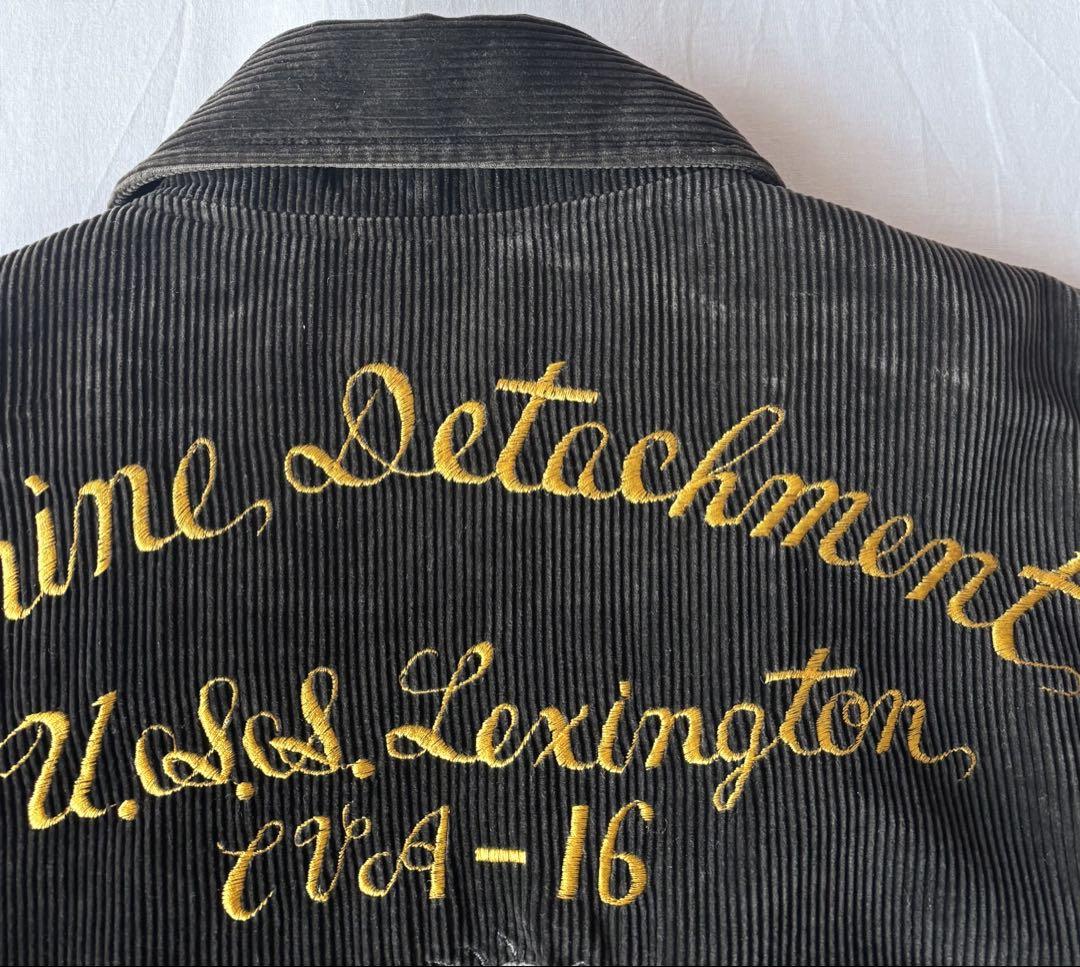 rine Detachment
U.S.S. Lexington
CVA-16